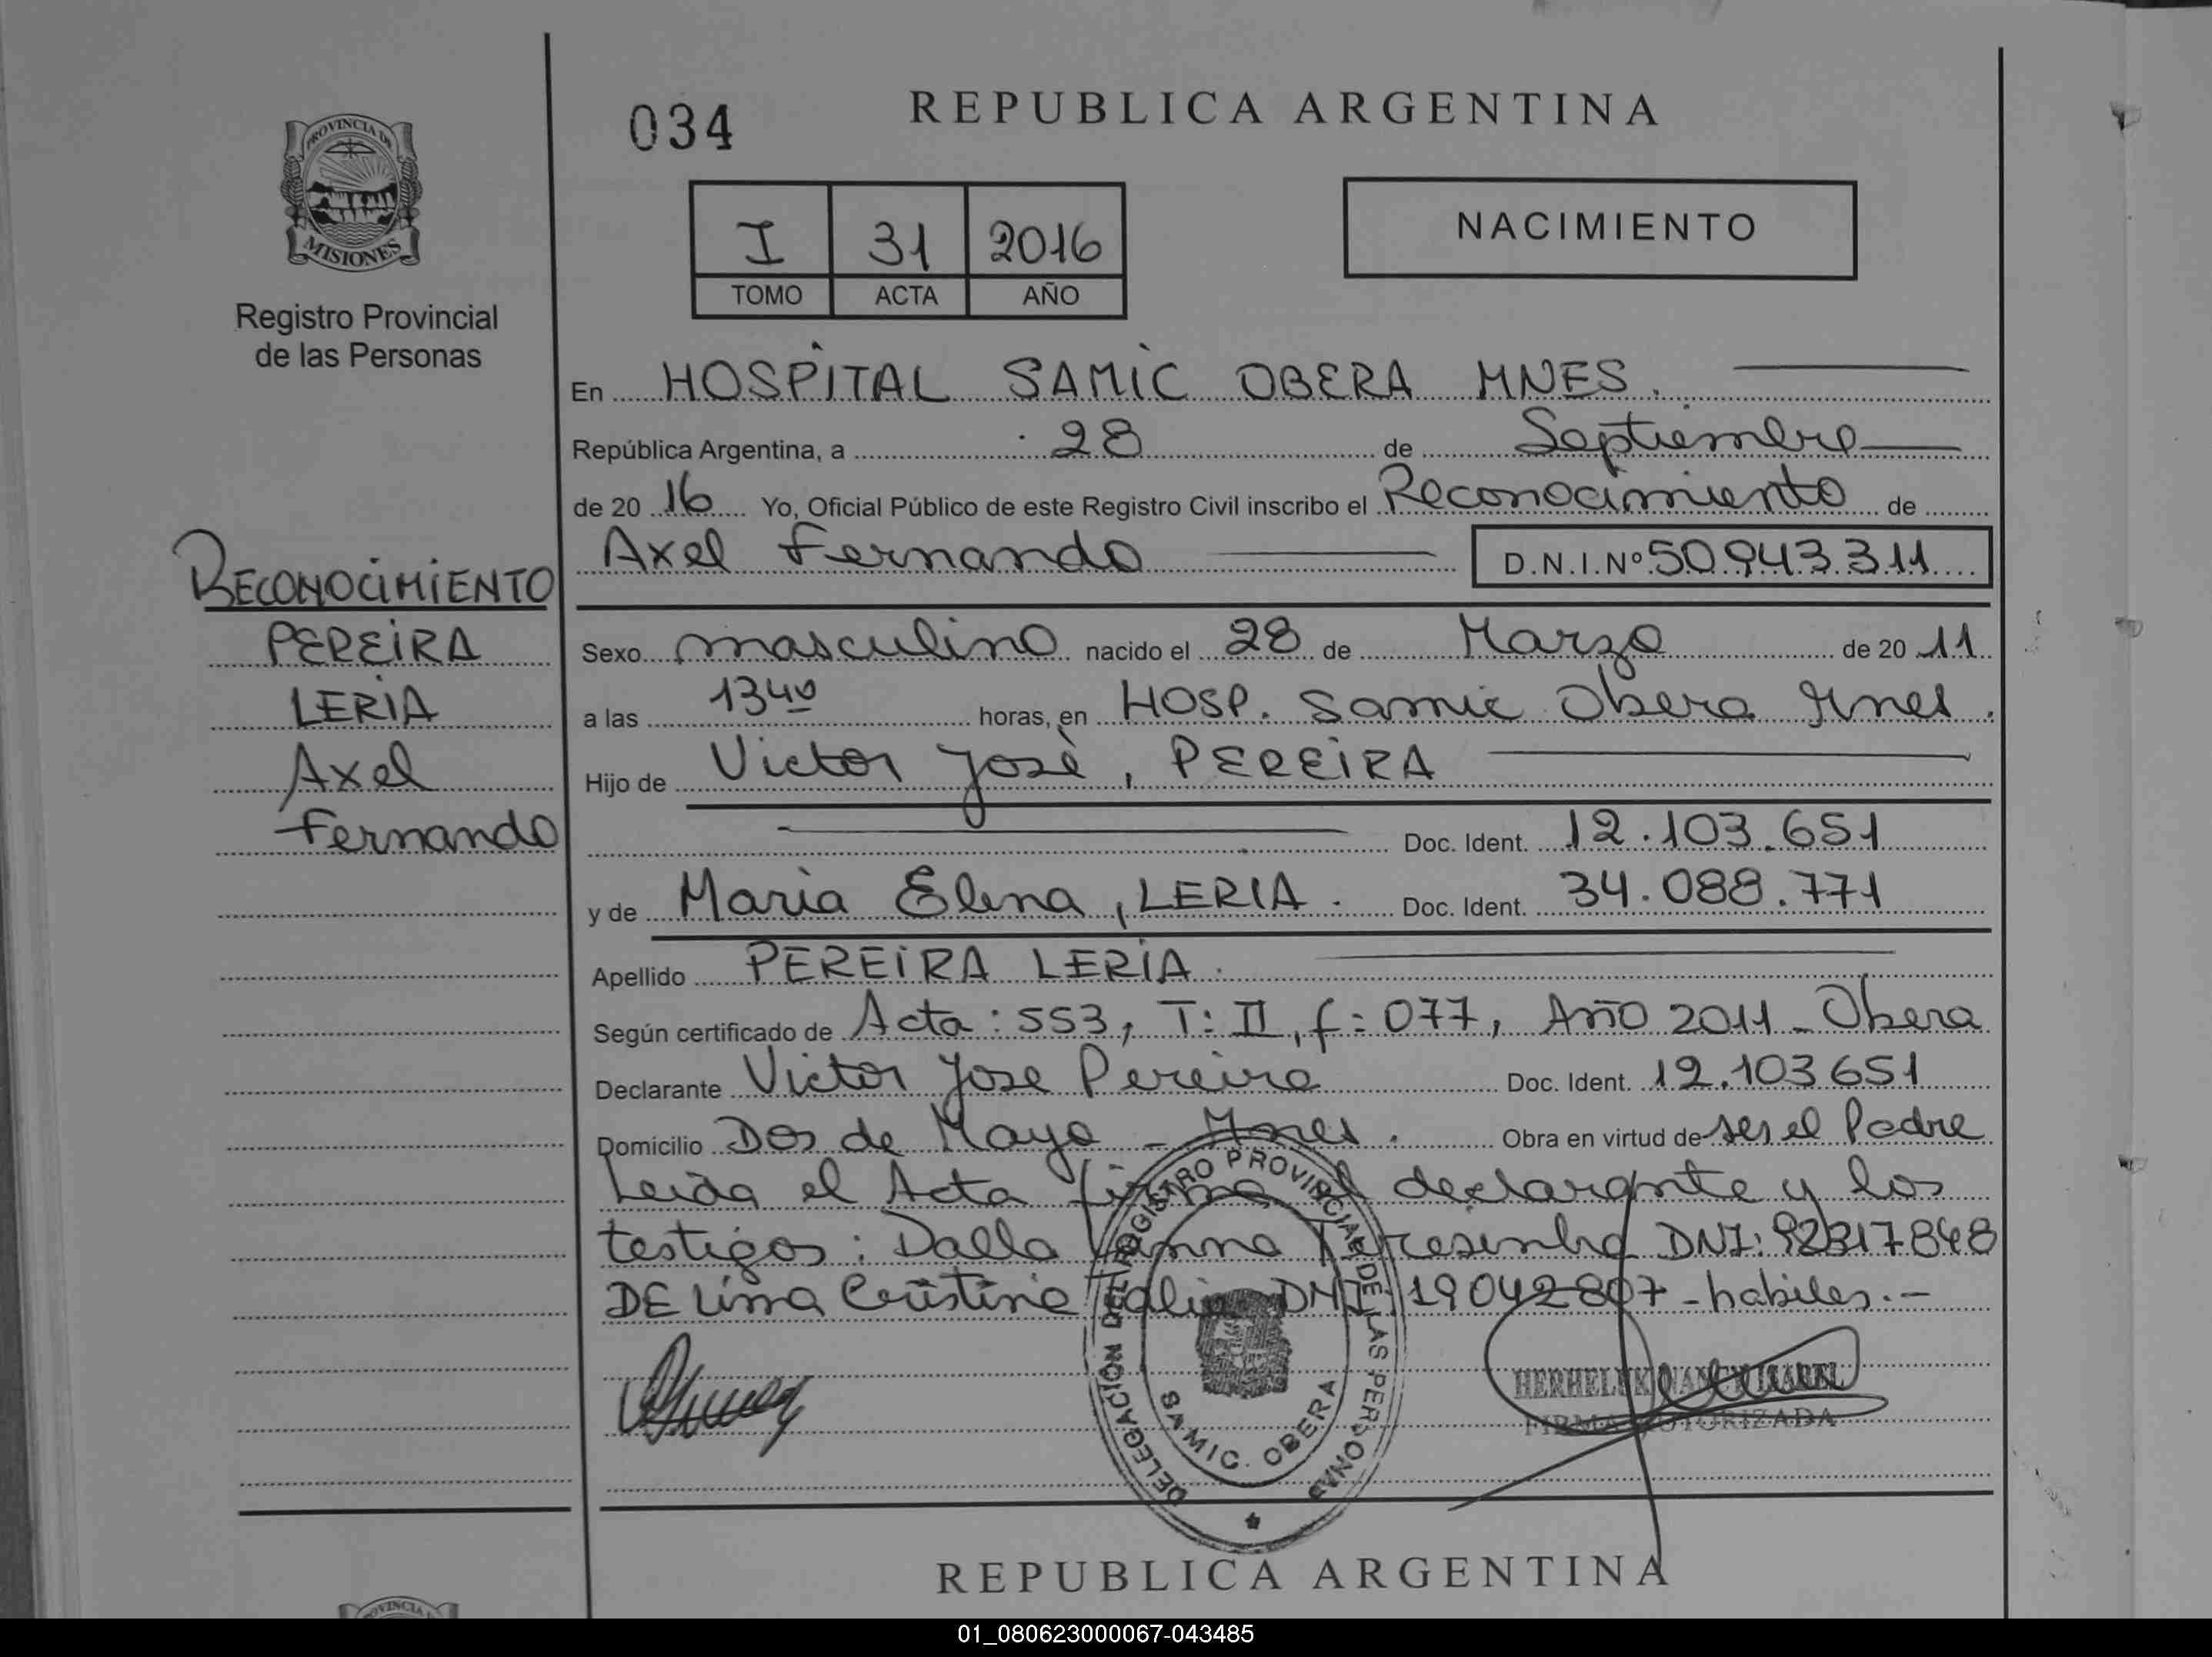 PROVINCIA DE
MISIONES
Registro Provincial
de las Personas
034
REPUBLICA ARGENTINA
I 31 2016
TOMO ACTA AÑO
NACIMIENTO
En HOSPITAL SAMIC OBERA MNES.
República Argentina, a 28 de Septiembre
de 20 16 Yo, Oficial Público de este Registro Civil inscribo el Reconocimiento de
Axel Fernando D.N.I.Nº 50.943.311
RECONOCIMIENTO
PEREIRA
LERIA
Axel
Fernando
Sexo masculino nacido el 28 de Marzo de 20 11
a las 13 40 horas, en HOSP. Samic Obera Mnes.
Hijo de Victor José, PEREIRA
Doc. Ident. 12.103.651
y de Maria Elena, LERIA. Doc. Ident. 34.088.771
Apellido PEREIRA LERIA.
Según certificado de Acta: 553, T: II, f: 077, Año 2011 - Obera
Declarante Victor Jose Pereira Doc. Ident. 12.103.651
Domicilio Dos de Mayo - Mnes. Obra en virtud de ser el Padre
Leida el Acta firma el declarante y los
testigos: Dalla Teresinha DNI: 92317848
DE Lima Cristina DNI: 19042807 - habiles.-
DELEGACION DEL REGISTRO PROVINCIAL DE LAS PERSONAS
SAMIC. OBERA
FIRMA AUTORIZADA
REPUBLICA ARGENTINA
PROVINCIA
01_080623000067-043485